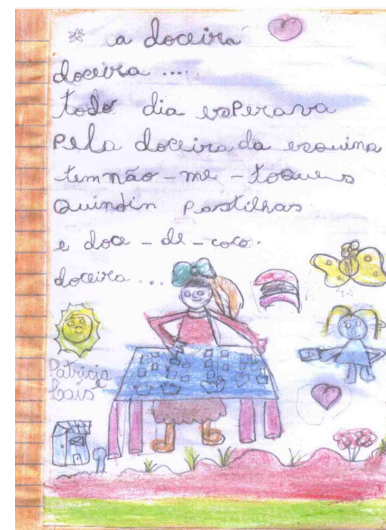 a doceira
doceira ...
todo dia esperava
Pela doceira da esquina
tem não-me-toques
Quindin Pastilhas
e doce-de-coco.
doceira ...
Patricia
Lais